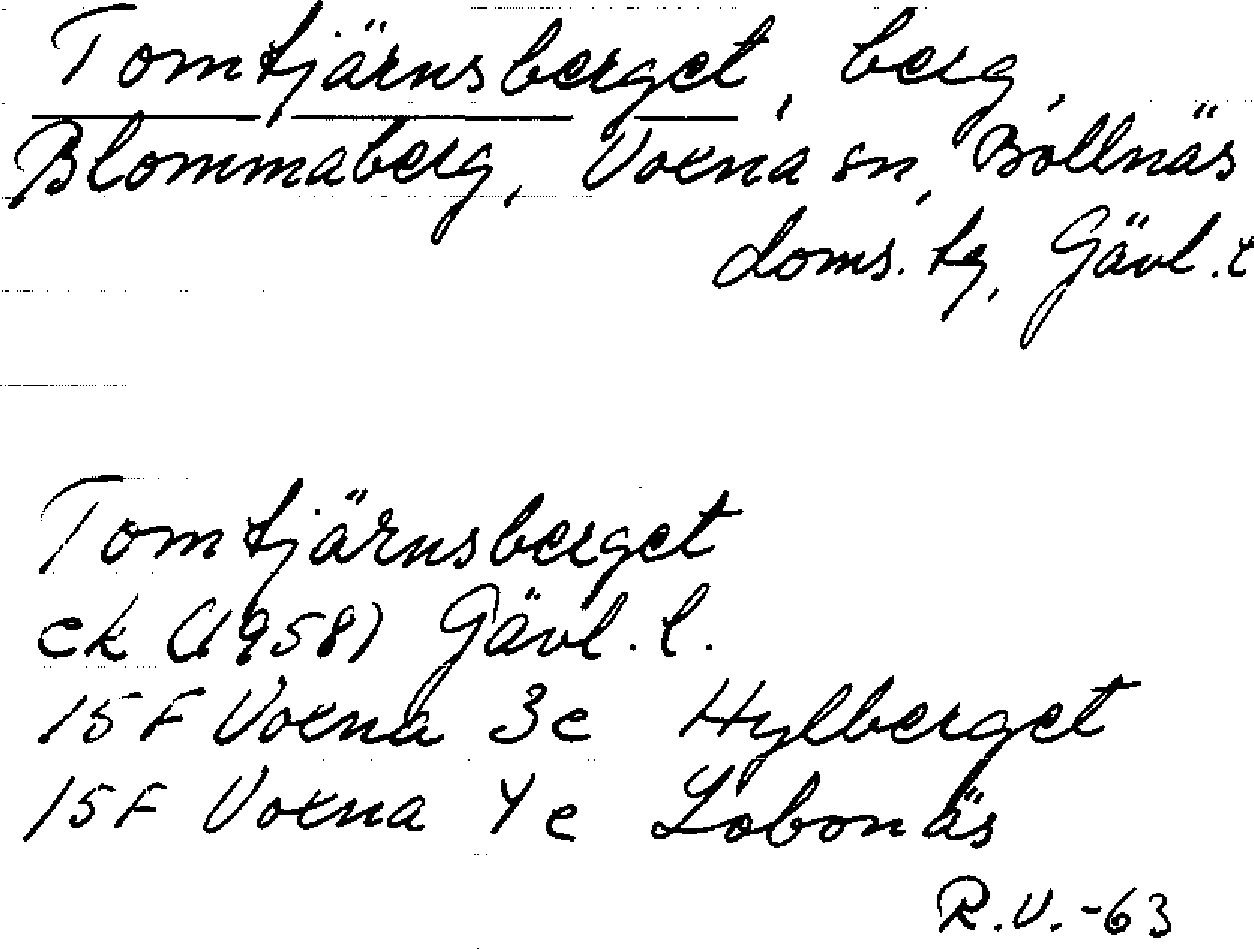 Tomtjärnsberget, berg,
Blommaberg, Voxna sn, Bollnäs
doms. tg, Gävl. l
Tomtjärnsberget
ek (1958) Gävl. l.
15F Voxna 3e Hylberget
15F Voxna 4e Lobonäs
R.V.-63